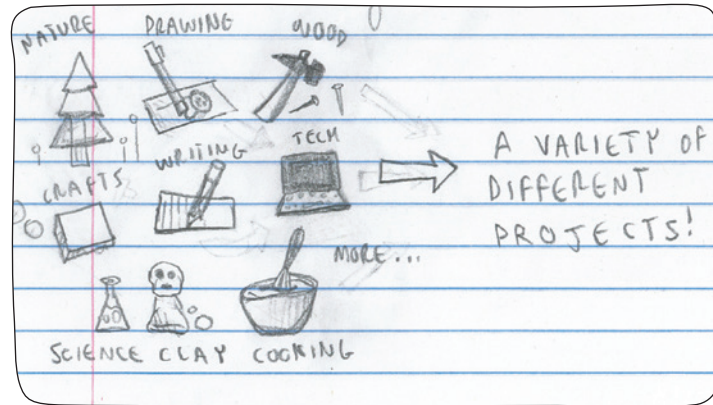 NATURE DRAWING WOOD
CRAFTS WRITING TECH
MORE...
SCIENCE CLAY COOKING
A VARIETY OF
DIFFERENT
PROJECTS!